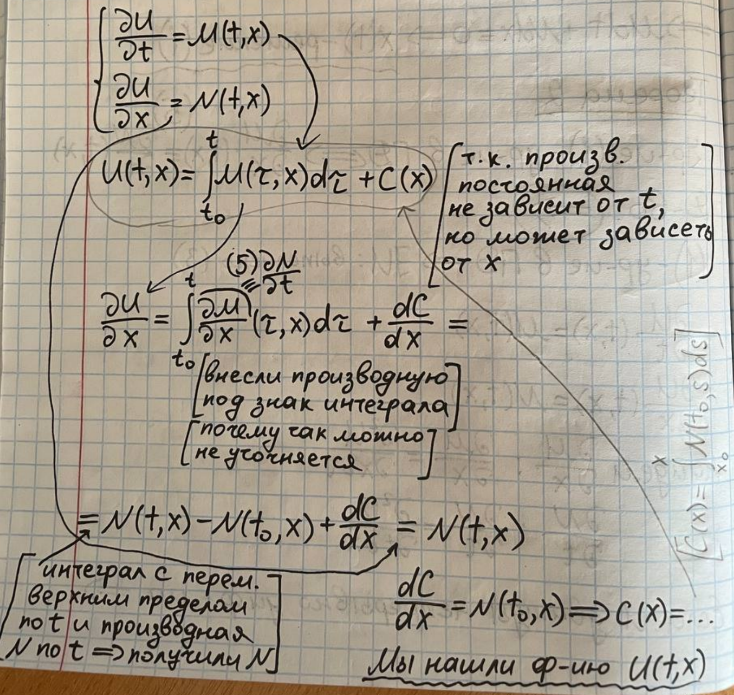 {∂U/∂t = M(t,x)
∂U/∂x = N(t,x)
U(t,x) = ∫_{t₀}^{t} M(τ,x)dτ + C(x)
[т.к. произв.
постоянная
не зависит от t,
но может зависеть
от x]
(5) ∂N/∂t
∂U/∂x = ∫_{t₀}^{t} ∂M/∂x (τ,x)dτ + dC/dx =
[внесли производную
под знак интеграла]
[почему так можно
не уточняется]
= N(t,x) − N(t₀,x) + dC/dx = N(t,x)
[интеграл с перем.
верхним пределом
по t и производная
N по t ⇒ получили N]
dC/dx = N(t₀,x) ⇒ C(x) = ...
[C(x) = ∫_{x₀}^{x} N(t₀,s)ds]
Мы нашли ф-ию U(t,x)